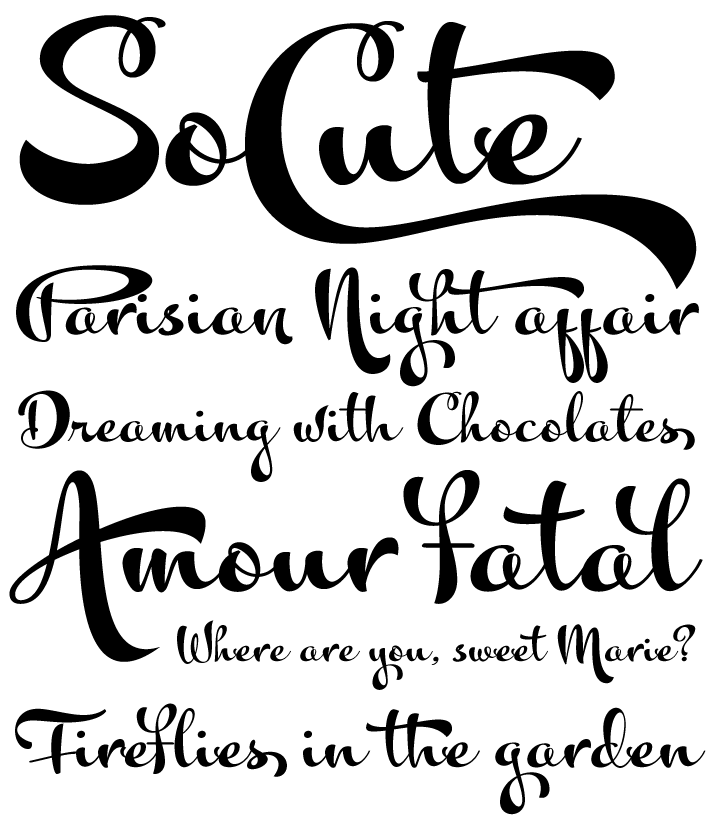 So Cute
Parisian Night affair
Dreaming with Chocolates
Amour fatal
Where are you, sweet Marie?
Fireflies in the garden